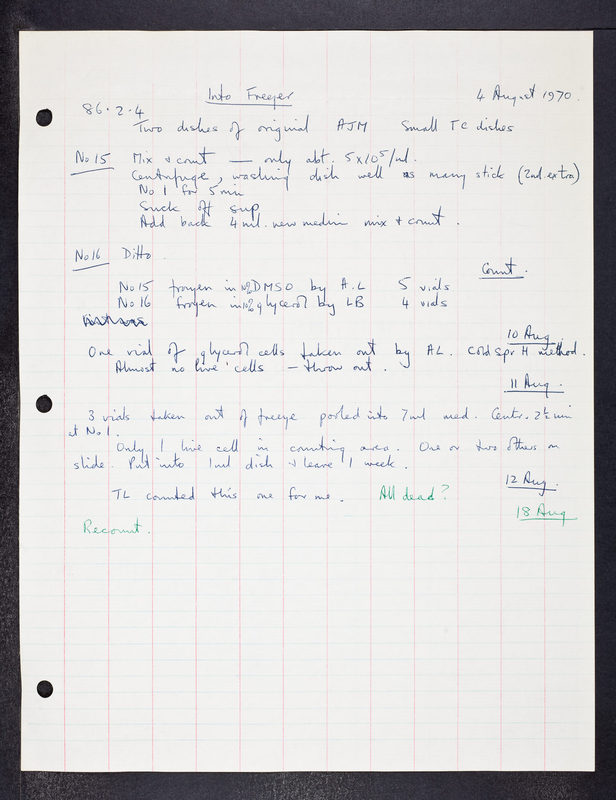 Into Freezer
4 August 1970.
86.2.4
Two dishes of original AJM Small TC dishes
No 15 Mix & count — only abt. 5x10⁵/ml.
Centrifuge, washing dish well as many stick (2ml extra)
No 1 for 5 min
Suck off sup
Add back 4 ml. new medium mix & count.
No 16 Ditto.
Count.
No 15 frozen in 10% DMSO by A.L 5 vials
No 16 frozen in 10% glycerol by LB 4 vials
10 Aug.
One vial of glycerol cells taken out by AL. Cold Spr H method.
Almost no 'live' cells — throw out.
11 Aug.
3 vials taken out of freeze pooled into 7ml med. Centr. 2½ min
at No 1.
Only 1 live cell in counting area. One or two others on
slide. Put into 1ml dish & leave 1 week.
12 Aug.
TL counted this one for me. All dead?
18 Aug
Recount.